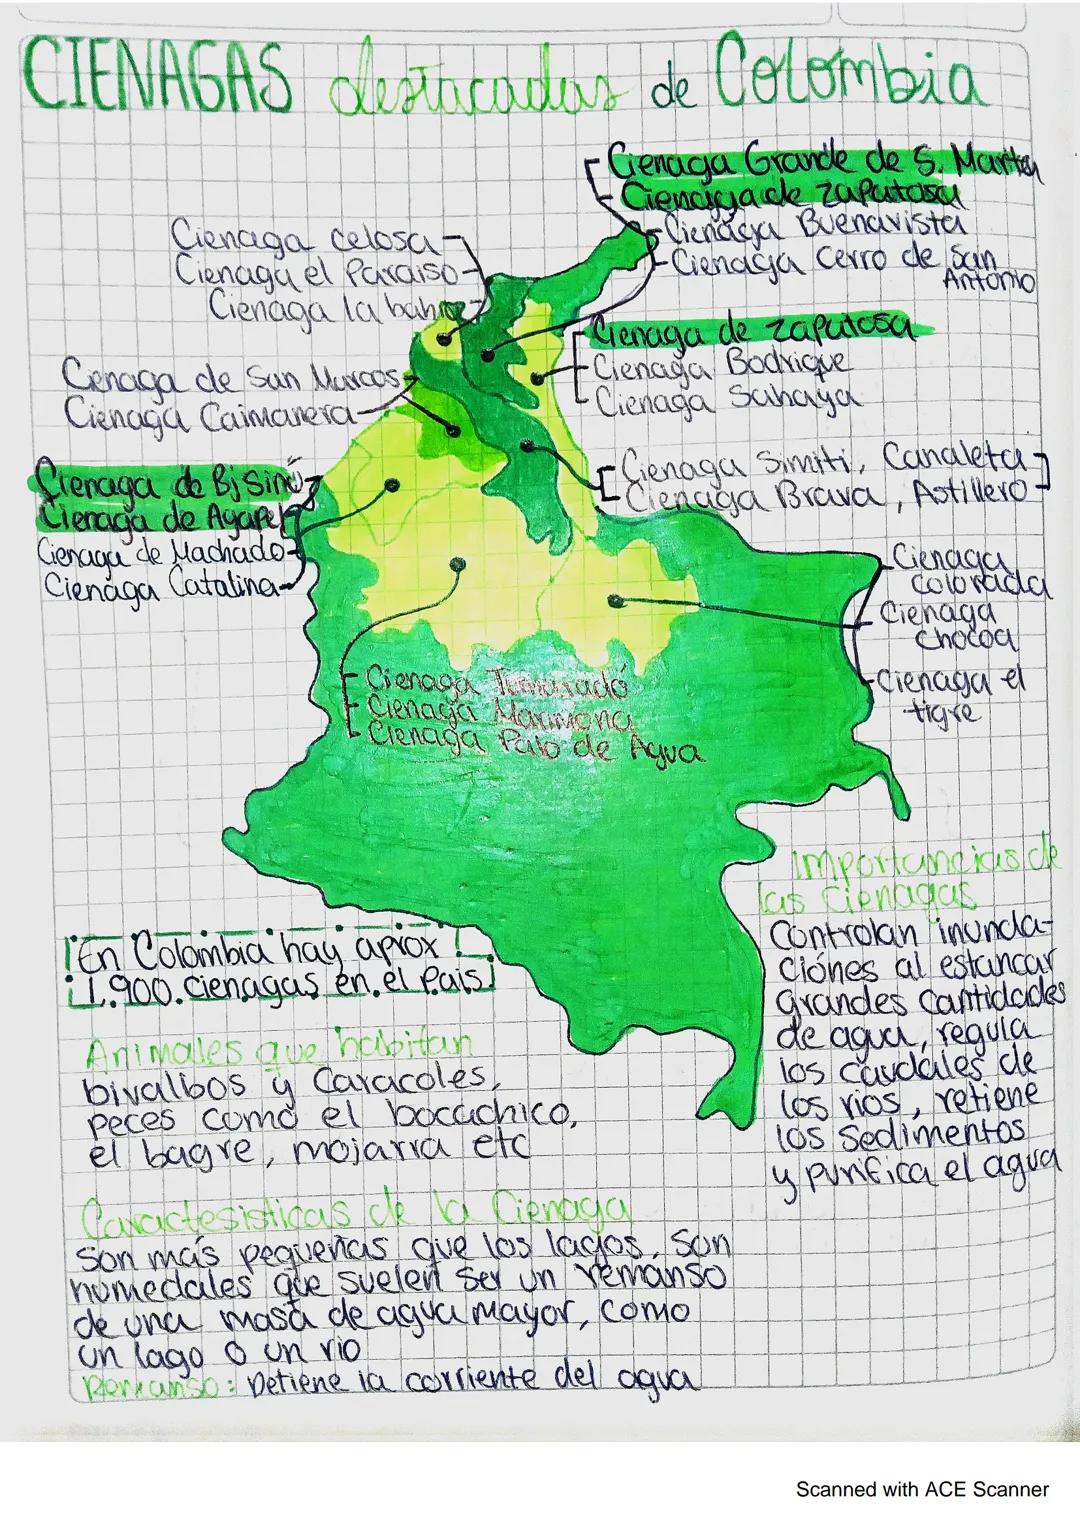 CIENAGAS destacadas de Colombia
Cienaga Grande de S. Marta
Cienaga de zapatosa
Cienaga Buenavista
Cienaga Cerro de San
Antonio
Cienaga celosa
Cienaga el Paraiso
Cienaga la bahia
Cienaga de zapatosa
Cienaga Bodrique
Cienaga Sahaya
Cienaga de San Marcos
Cienaga Caimanera
Cienaga Simiti, Canaleta
Cienaga Brava, Astillero
Cienaga de Bj Sinú
Cienaga de Ayapel
Cienaga de Machado
Cienaga Catalina
Cienaga
colorada
Cienaga
Chocoa
Cienaga el
tigre
Cienaga Tumaradó
Cienaga Marriona
Cienaga Palo de Agua
importancias de
las Cienagas
Controlan inunda-
ciónes al estancar
grandes Cantidades
de agua, regula
los caudales de
los rios, retiene
los Sedimentos
y purifica el agua
En Colombia hay aprox
1.900. cienagas en el Pais
Animales que habitan
bivalbos y Caracoles,
peces como el bocachico,
el bagre, mojarra etc
Caractesisticas de la Cienaga
Son más pequeñas que los lagos, Son
humedales que suelen ser un remanso
de una masa de agua mayor, como
un lago o un rio
Remanso: Detiene la corriente del agua
Scanned with ACE Scanner